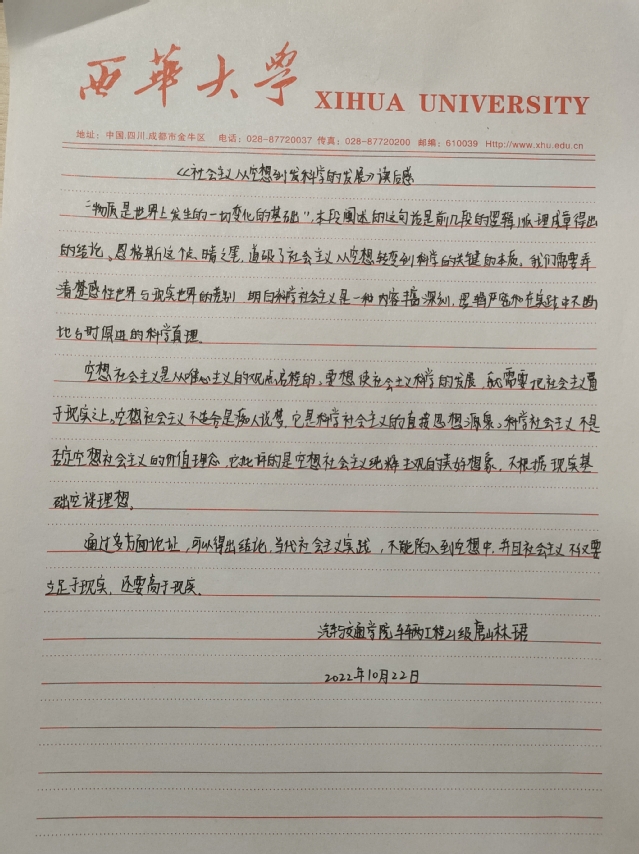 西華大學 XIHUA UNIVERSITY
地址：中国.四川.成都市金牛区 电话：028-87720037 传真：028-87720200 邮编：610039 Http://www.xhu.edu.cn
《社会主义从空想到发科学的发展》读后感
“物质是世界上发生的一切变化的基础”，本段阐述的这句话是前几段的逻辑派理成章得出
的结论。恩格斯这个点睛之笔，道破了社会主义从空想转变到科学的关键的本质，我们需要弄
清楚感性世界与现实世界的差别 明白科学社会主义是一种内容丰富深刻，逻辑严密和在实践中不断
地与时俱进的科学真理。
空想社会主义是从唯心主义的观点启程的，要想使社会主义科学的发展，就需要把社会主义置
于现实之上。空想社会主义不是会是痴人说梦，它是科学社会主义的直接思想源泉。科学社会主义不是
否定空想社会主义的价值理念，它批评的是空想社会主义纯粹主观的美好想象，不根据现实基
础空谈理想。
通过多方面论证，可以得出结论，当代社会主义实践，不能陷入到空想中，并且社会主义不仅要
立足于现实，还要高于现实。
汽车与交通学院车辆工程21级唐林珺
2022年10月22日